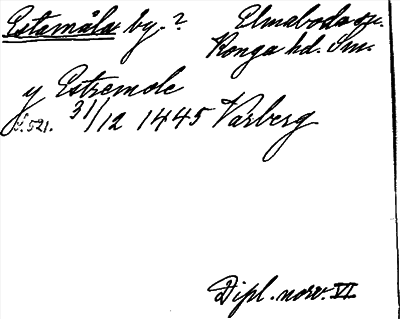 Estamåla by.? Elmeboda sn.
Konga hd. Sm.
y Estremole
s. 521. 31/12 1445 Varberg
Dipl. norv. VI